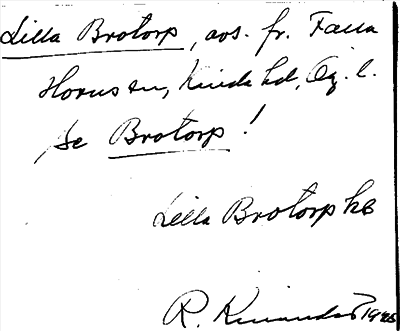 Lilla Brotorp, avs. fr. Falla
Horns sn, Kinda hd, Ög. l.
Se Brotorp!
Lilla Brotorp hs
R. 1945